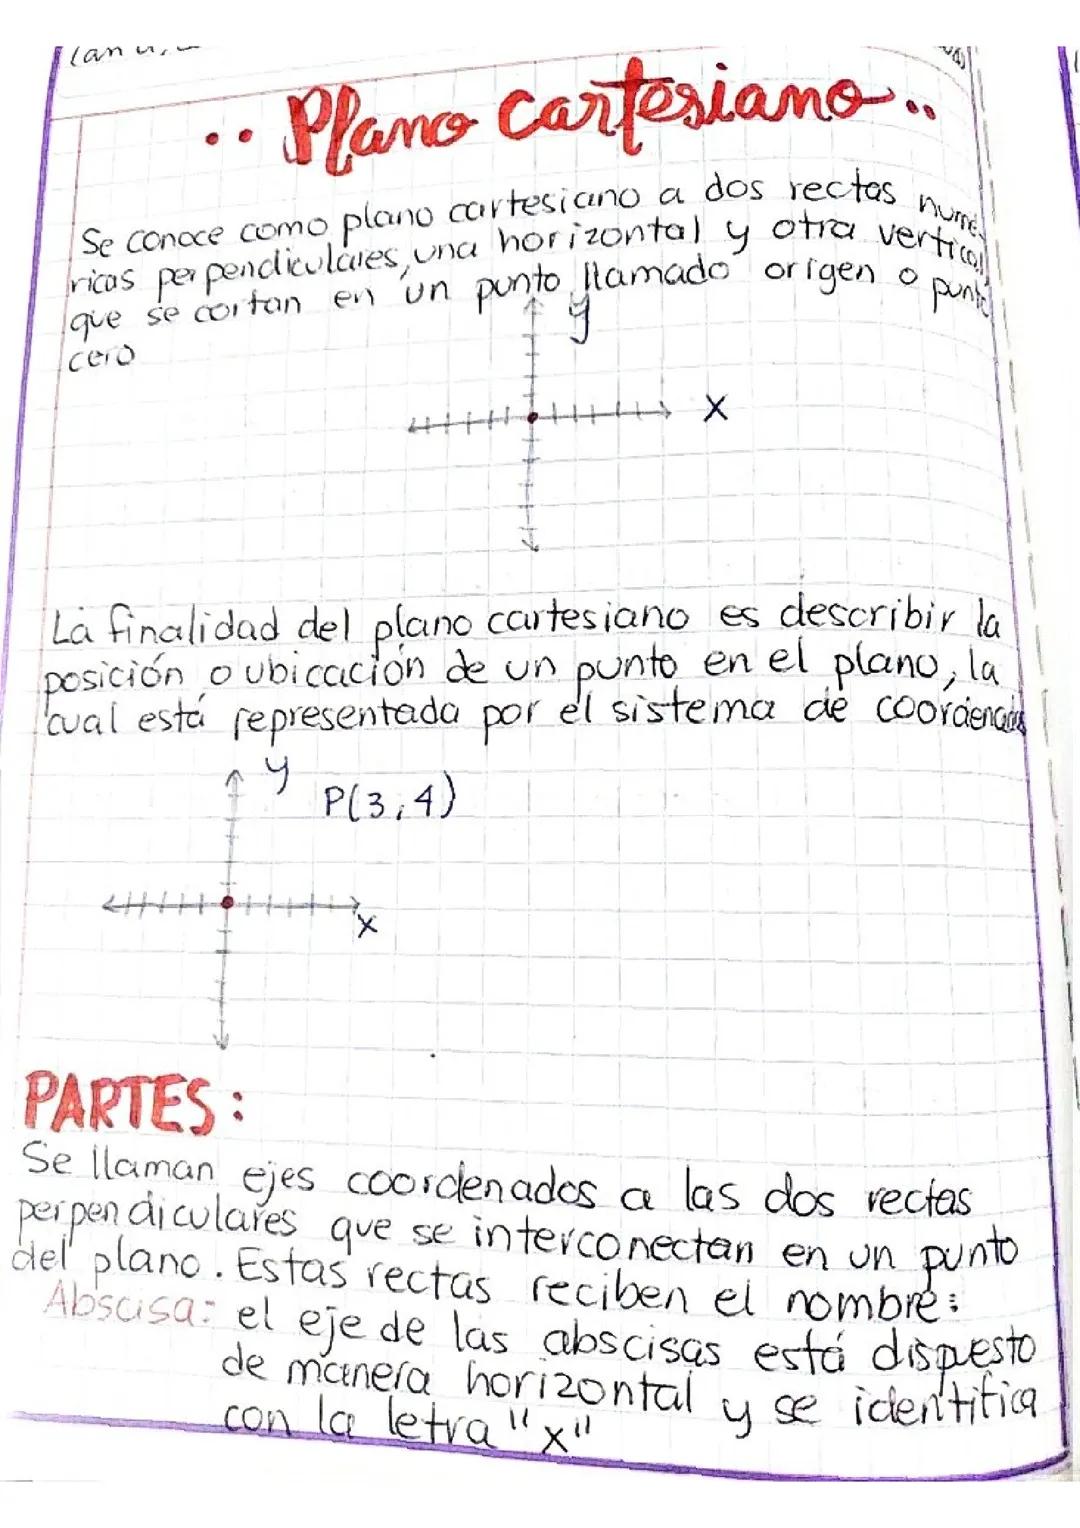 .. Plano cartesiano ..
Se conoce como plano cartesiano a dos rectas numé
ricas perpendiculares, una horizontal y otra vertical,
que se cortan en un punto llamado origen o punto
cero
y
x
La finalidad del plano cartesiano es describir la
posición o ubicación de un punto en el plano, la
cual está representada por el sistema de coordenadas
y
P(3,4)
x
PARTES:
Se llaman ejes coordenados a las dos rectas
perpendiculares que se interconectan en un punto
del plano. Estas rectas reciben el nombre:
Abscisa: el eje de las abscisas está dispuesto
de manera horizontal y se identifica
con la letra "x"